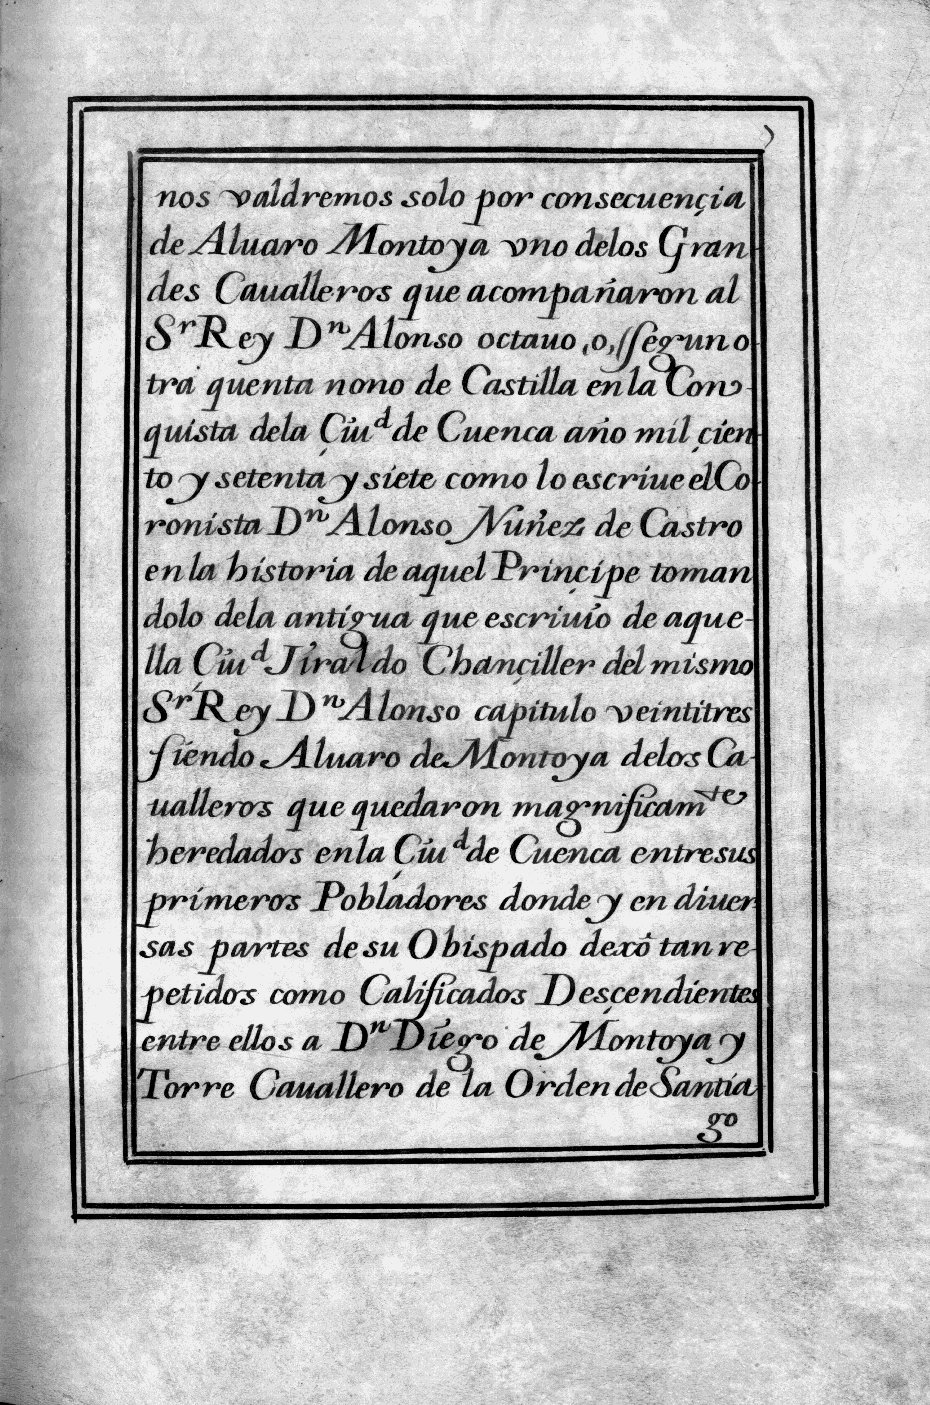 nos valdremos solo por consecuençia
de Aluaro Montoya vno delos Gran-
des Caualleros que acompañaron al
Sr Rey Dn Alonso octauo, o, ssegun o-
tra quenta nono de Castilla en la Con-
quista dela Çiud de Cuenca año mil çien-
to y setenta y siete como lo escriue el Co-
ronista Dn Alonso Nuñez de Castro
en la historia de aquel Prinçipe toman
dolo dela antigua que escriuio de aque-
lla Çiud Jiraldo Chançiller del mismo
Sr Rey Dn Alonso capitulo veintitres
siendo Aluaro de Montoya delos Ca-
ualleros que quedaron magnificamte
heredados en la Çiud de Cuenca entre sus
primeros Pobladores donde y en diuer
sas partes de su Obispado dexô tan re-
petidos como Calificados Desçendientes
entre ellos a Dn Diego de Montoya y
Torre Cauallero de la Orden de Santia-
go